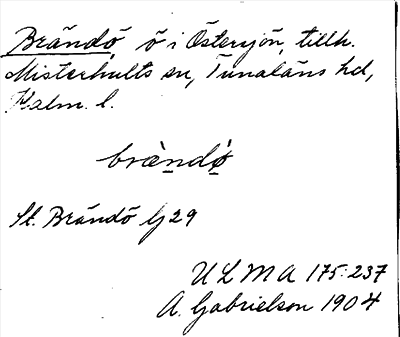 Brändö, ö i Östersjön, tillh.
Misterhults sn, Tunaläns hd,
Kalm. l.
bræ̀ndǿ
St. Brändö Gj 29
U L M A 175:237
A. Gabrielson 1904